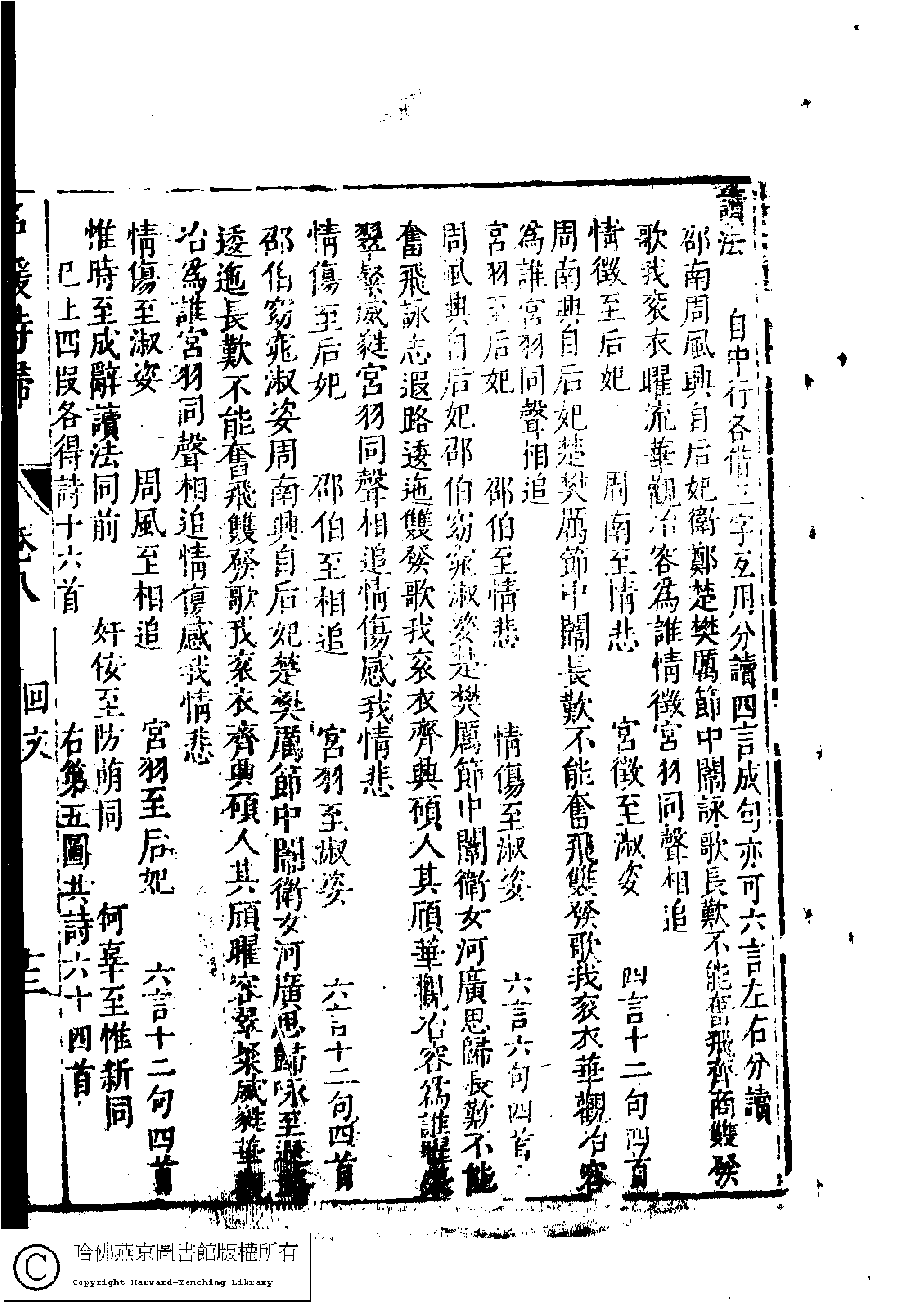 讀法　自中行各借一字互用分讀四言成句亦可六言左右分讀
邵南周風興自后妃衛鄭楚樊厲節中闈詠歌長歎不能奮飛齊商雙發
歌我袞衣曜流華觀冶容為誰情徵宮羽同聲相追
情徵至后妃　周南至情悲　宮徵至淑姿　四言十二句四首
周南興自后妃楚樊厲節中闈長歎不能奮飛雙發歌我袞衣華觀冶容
為誰宮羽同聲相追
宮羽至后妃　邵伯至情悲　情傷至淑姿　六言六句四首
周風興自后妃邵伯窈窕淑姿楚樊厲節中闈衛女河廣思歸長歎不能
奮飛詠志遐路逶迤雙發歌我袞衣齊興碩人其頎華觀冶容為誰曜
翠粲威蕤宮羽同聲相追情傷感我情悲
情傷至后妃　邵伯至相追　宮羽至淑姿　六言十二句四首
邵伯窈窕淑姿周南興自后妃楚樊厲節中闈衛女河廣思歸咏至遐路
逶迤長歎不能奮飛雙發歌我袞衣齊興碩人其頎曜容翠粲威蕤華觀
冶為誰宮羽同聲相追情傷感我情悲
情傷至淑姿　周風至相追　宮羽至后妃　六言十二句四首
惟時至成辭讀法同前　奸佞至防萌同　何辜至惟新同
已上四段各得詩十六首　右第五圖共詩六十四首
名媛詩歸　卷八　回文　十三
哈佛燕京圖書館版權所有
Copyright Harvard-Yenching Library